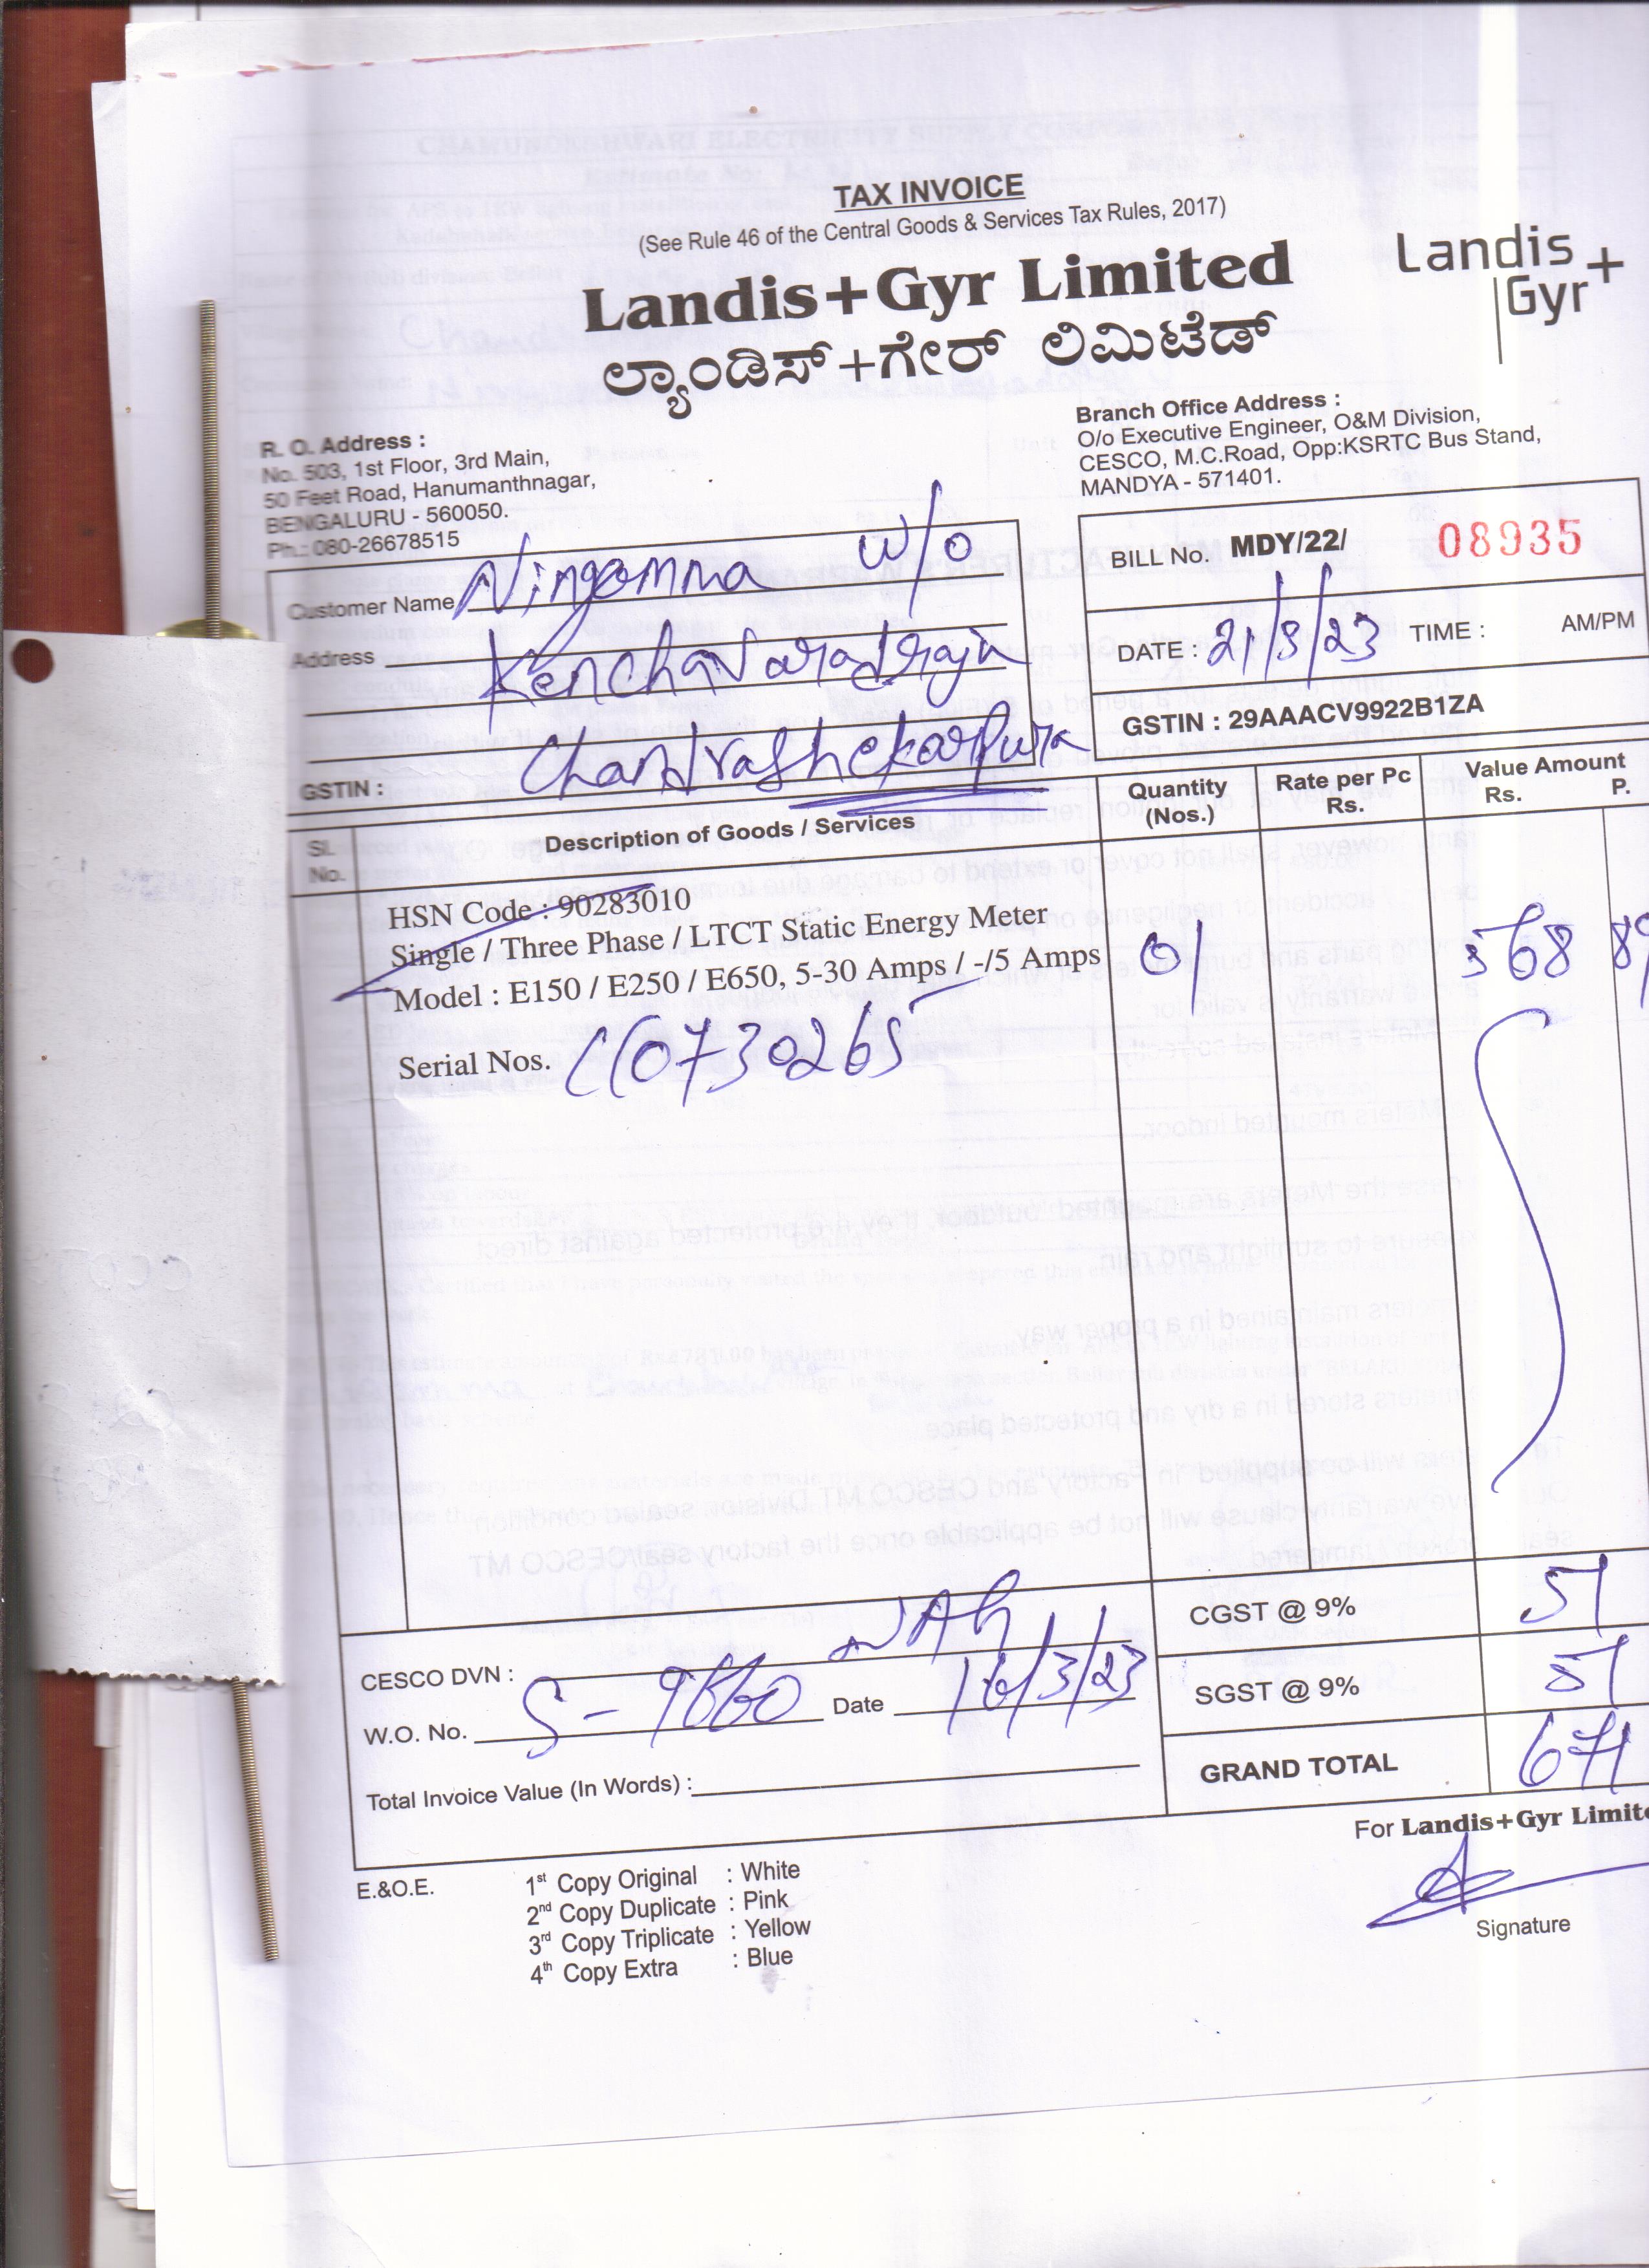 TAX INVOICE
(See Rule 46 of the Central Goods & Services Tax Rules, 2017)
Landis+Gyr Limited
ಲ್ಯಾಂಡಿಸ್+ಗೇರ್ ಲಿಮಿಟೆಡ್
Landis
Gyr+
R. O. Address :
No. 503, 1st Floor, 3rd Main,
50 Feet Road, Hanumanthnagar,
BENGALURU - 560050.
Ph.: 080-26678515
Branch Office Address :
O/o Executive Engineer, O&M Division,
CESCO, M.C.Road, Opp:KSRTC Bus Stand,
MANDYA - 571401.
Customer Name Ningamma W/o
Address Kenchavaradraju
Chandrashekarpura
GSTIN :
BILL No. MDY/22/ 08935
DATE : 21/3/23 TIME : AM/PM
GSTIN : 29AAACV9922B1ZA
Sl. No. Description of Goods / Services Quantity (Nos.) Rate per Pc Rs. Value Amount Rs. P.
HSN Code : 90283010
Single / Three Phase / LTCT Static Energy Meter
Model : E150 / E250 / E650, 5-30 Amps / -/5 Amps 01 568
Serial Nos. CC0730265
CGST @ 9% 51
SGST @ 9% 51
GRAND TOTAL 671
CESCO DVN :
W.O. No. Date 16/3/23
Total Invoice Value (In Words) :
For Landis+Gyr Limite
Signature
E.&O.E.
1st Copy Original : White
2nd Copy Duplicate : Pink
3rd Copy Triplicate : Yellow
4th Copy Extra : Blue